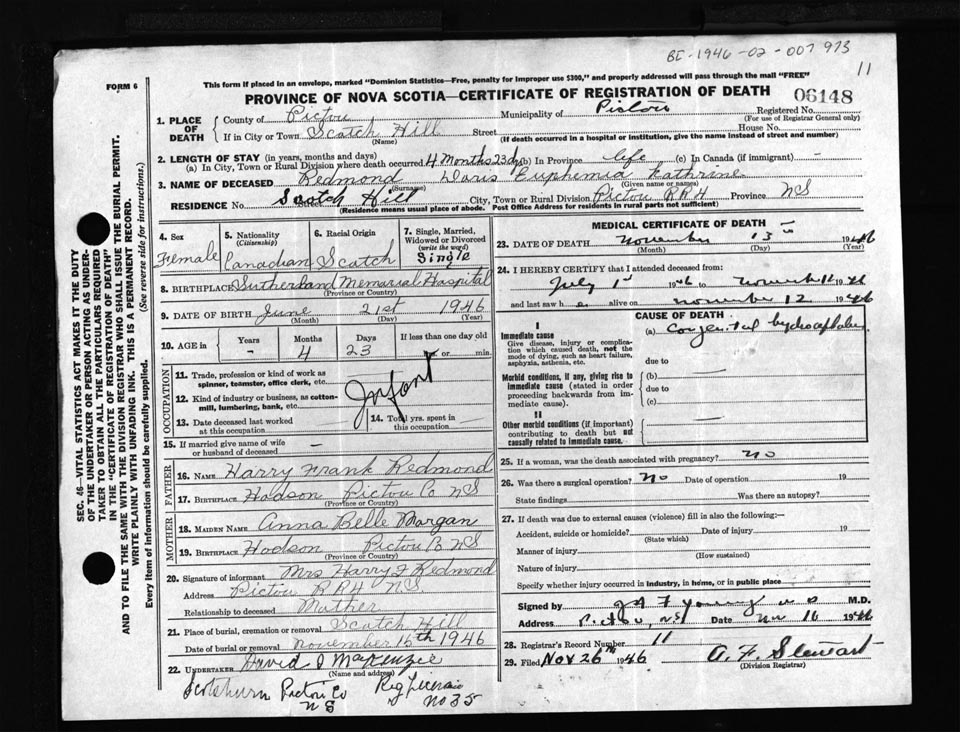 BE-1946-02-007973
11
FORM 6
This form if placed in an envelope, marked "Dominion Statistics—Free, penalty for improper use $300," and properly addressed will pass through the mail "FREE"
PROVINCE OF NOVA SCOTIA—CERTIFICATE OF REGISTRATION OF DEATH
06148
1. PLACE OF DEATH
County of Pictou Municipality of Pictou Registered No.
(For use of Registrar General only)
If in City or Town Scotch Hill Street House No.
(Name) (If death occurred in a hospital or institution, give the name instead of street and number)
2. LENGTH OF STAY (in years, months and days)
(a) In City, Town or Rural Division where death occurred 4 Months 23 dys (b) In Province life (c) In Canada (if immigrant) -
3. NAME OF DECEASED Redmond Doris Euphemia Kathrine
(Surname) (Given name or names)
RESIDENCE No. Street Scotch Hill City, Town or Rural Division Pictou RR4 Province NS
(Residence means usual place of abode. Post Office Address for residents in rural parts not sufficient)
4. Sex
Female
5. Nationality
(Citizenship)
Canadian
6. Racial Origin
Scotch
7. Single, Married, Widowed or Divorced
(write the word)
Single
8. BIRTHPLACE Sutherland Memorial Hospital
(Province or Country)
9. DATE OF BIRTH June 21st 1946
(Month) (Day) (Year)
10. AGE in
Years Months Days If less than one day old
- 4 23 hr. or min.
OCCUPATION
11. Trade, profession or kind of work as spinner, teamster, office clerk, etc.
12. Kind of industry or business, as cotton-mill, lumbering, bank, etc.
Infant
13. Date deceased last worked at this occupation
14. Total yrs. spent in this occupation
15. If married give name of wife or husband of deceased -
FATHER
16. NAME Harry Frank Redmond
17. BIRTHPLACE Hodson Pictou Co NS
(Province or Country)
MOTHER
18. MAIDEN NAME Anna Belle Morgan
19. BIRTHPLACE Hodson Pictou Co NS
(Province or Country)
20. Signature of informant Mrs Harry F Redmond
Address Pictou RR4 NS
Relationship to deceased Mother
21. Place of burial, cremation or removal Scotch Hill
Date of burial or removal November 15th 1946
22. UNDERTAKER David D MacKenzie
(Name and address)
Scotsburn Pictou Co NS
No 35
MEDICAL CERTIFICATE OF DEATH
23. DATE OF DEATH November 13 1946
(Month) (Day) (Year)
24. I HEREBY CERTIFY that I attended deceased from:
July 1st 1946 to November 1946
and last saw her alive on November 12 1946
CAUSE OF DEATH
I
Immediate cause
Give disease, injury or complication which caused death, not the mode of dying, such as heart failure, asphyxia, asthenia, etc.
(a) Congenital hydrocephalus
due to
Morbid conditions, if any, giving rise to immediate cause (stated in order proceeding backwards from immediate cause).
(b)
due to
(c)
II
Other morbid conditions (if important) contributing to death but not causally related to immediate cause.
25. If a woman, was the death associated with pregnancy? No
26. Was there a surgical operation? No Date of operation 19
State findings Was there an autopsy?
27. If death was due to external causes (violence) fill in also the following:—
Accident, suicide or homicide? Date of injury 19
(State which)
Manner of injury
(How sustained)
Nature of injury
Specify whether injury occurred in industry, in home, or in public place
Signed by Young M.D.
Address Pictou, NS Date Nov 16 1946
28. Registrar's Record Number 11
29. Filed Nov 26th 1946 A. F. Stewart
(Division Registrar)
SEC. 46—VITAL STATISTICS ACT MAKES IT THE DUTY
OF THE UNDERTAKER OR PERSON ACTING AS UNDER-
TAKER TO OBTAIN ALL THE PARTICULARS REQUIRED
IN THE "CERTIFICATE OF REGISTRATION OF DEATH"
AND TO FILE THE SAME WITH THE DIVISION REGISTRAR WHO SHALL ISSUE THE BURIAL PERMIT.
WRITE PLAINLY WITH UNFADING INK. THIS IS A PERMANENT RECORD.
Every item of information should be carefully supplied. (See reverse side for instructions.)